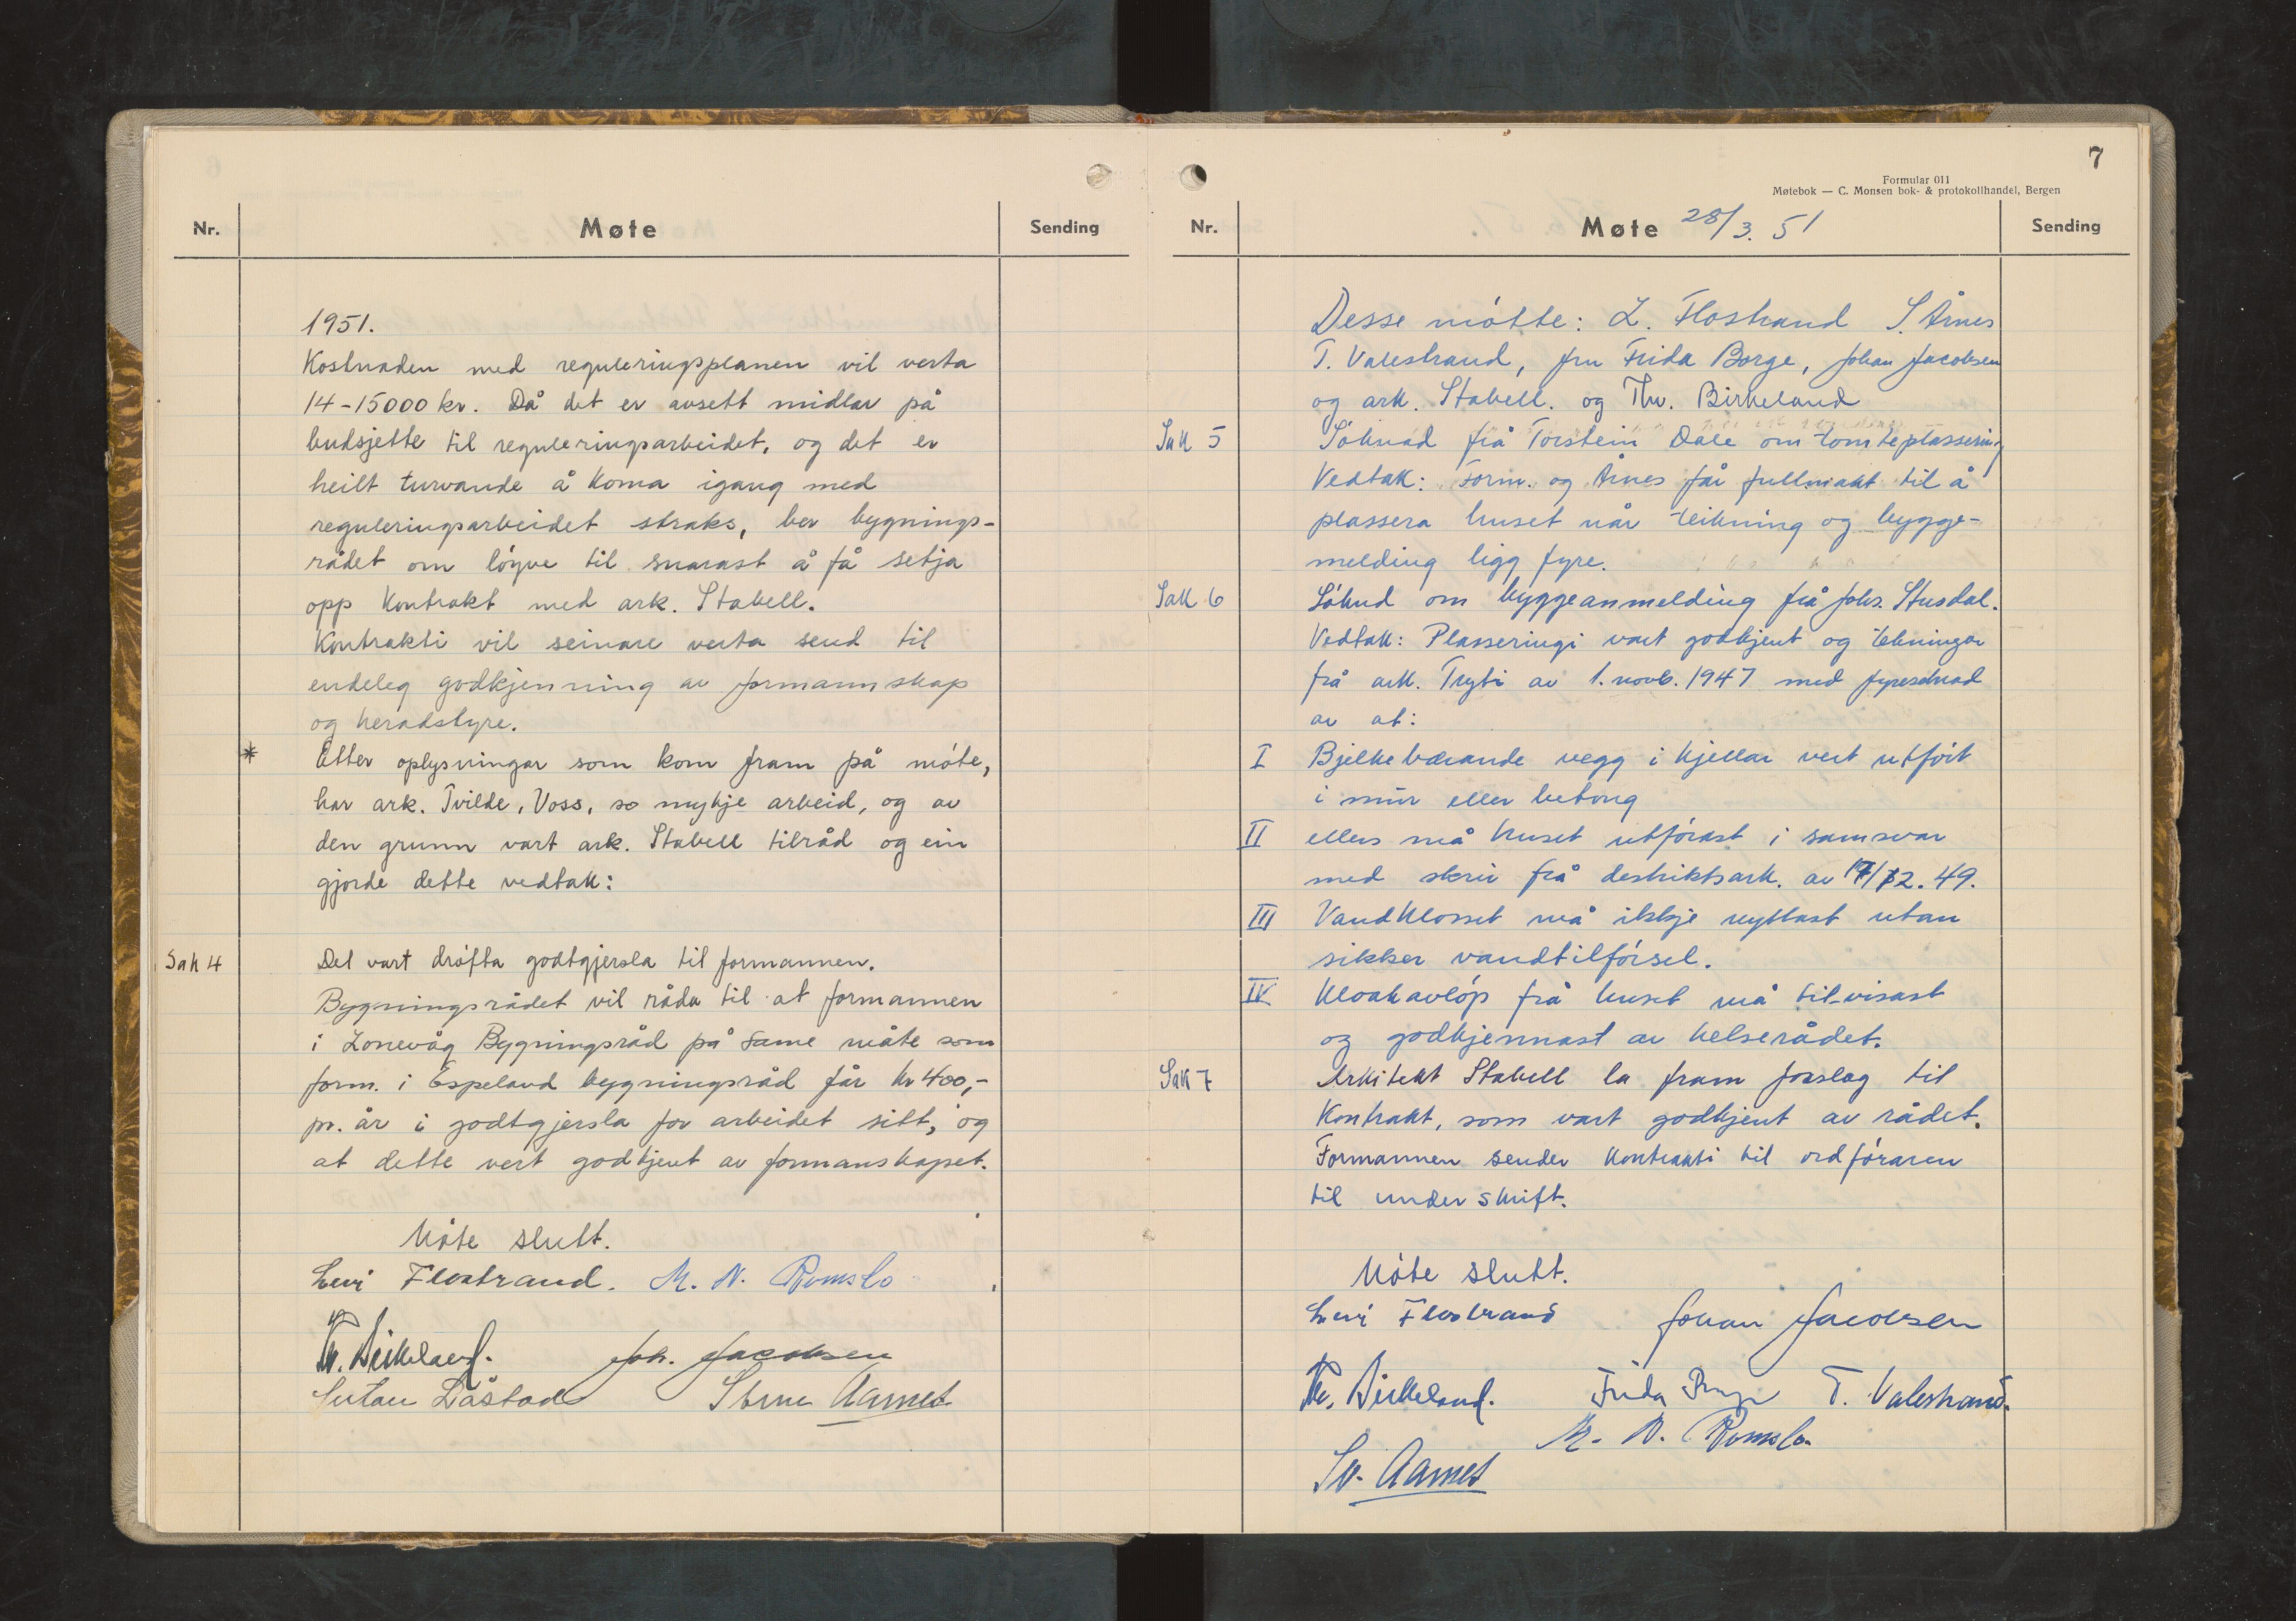 Nr.
Møte
Sending
1951.
Kostnaden med reguleringsplanen vil verta
14-15000 kr. Då det er avsett midlar på
budsjette til reguleringsarbeidet, og det er
heilt turvande å koma igang med
reguleringsarbeidet straks, ber bygnings-
rådet om løyve til snarast å få setja
opp kontrakt med ark. Stabell.
Kontrakti vil seinare verta send til
endeleg godkjenning av formannskap
og heradstyre.
* Etter oplysningar som kom fram på møte,
har ark. Tvilde, Voss, so mykje arbeid, og av
den grunn vart ark. Stabell tilråd og ein
gjorde dette vedtak:
Sak 4
Det vart drøfta godtgjersla til formannen.
Bygningsrådet vil råda til at formannen
i Lonevåg Bygningsråd på same måte som
form. i Espeland bygningsråd får kr 400,-
pr. år i godtgjersla for arbeidet sitt, og
at dette vert godkjent av formanskapet.
Møte slutt.
Levi Flostrand. M. N. Romslo
Th. Birkeland. Joh. Jacobsen
Låstad Aarnes
7
Formular 011
Møtebok — C. Monsen bok- & protokollhandel, Bergen
Nr.
Møte 28/3. 51
Sending
Desse møtte: L. Flostrand S. Årnes
T. Valestrand, fru Frida Borge, Johan Jacobsen
og ark. Stabell. og Thv. Birkeland
Sak 5 Søknad frå Torstein Dale om tomteplassering
Vedtak: Form. og Årnes får fullmakt til å
plassera huset når teikning og bygge-
melding ligg fyre.
Sak 6 Søknd om byggeanmelding frå Johs. Stusdal.
Vedtak: Plasseringi vart godkjent og tekningar
frå ark. Tryti av 1. novb. 1947 med fyresetnad
av at:
I Bjelkebærande vegg i kjellar vert utført
i mur eller betong
II ellers må huset utførast i samsvar
med skriv frå destriktsark. av 17/12. 49.
III Vandklosset må ikkje nyttast utan
sikker vandtilførsel.
IV Kloakavløp frå huset må til-visast
og godkjennast av helserådet.
Sak 7 Arkitekt Stabell la fram forslag til
kontrakt, som vart godkjent av rådet.
Formannen sender kontrakti til ordføraren
til underskrift.
Møte slutt.
Levi Flostrand Johan Jacobsen
Th. Birkeland. Frida Borge T. Valestrand.
M. N. Romslo.
Sv. Aarnes